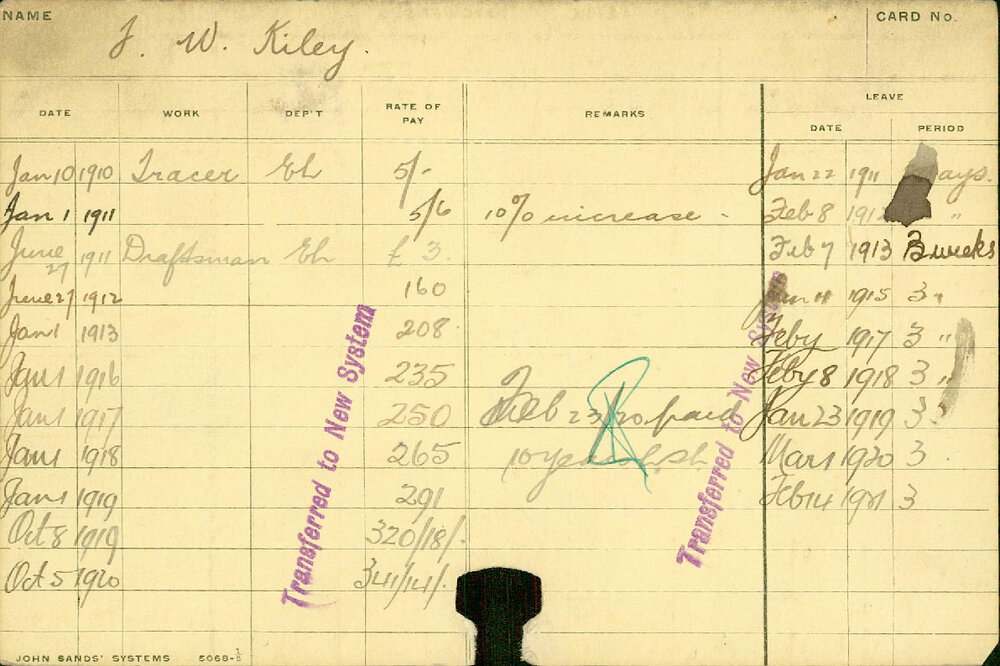 NAME
CARD No.
J. W. Kiley.
DATE WORK DEP'T RATE OF PAY REMARKS LEAVE
DATE PERIOD
Jan 10 1910 Tracer Eh 5/- Jan 22 1911 ays.
Jan 1 1911 5/6 10% increase - Feb 8 191 "
June 27 1911 Draftsman Eh £ 3. Feb 7 1913 3 weeks
June 27 1912 160 Jan 11 1915 3 "
Jan 1 1913 208 Feby 1917 3 "
Jan 1 1916 235 Feby 8 1918 3 "
Jan 1 1917 250 Feb 23/20. paid Jan 23 1919 3 "
Jan 1 1918 265 10 Mar 1 1920 3
Jan 1 1919 291 Feb 14 1921 3
Oct 8 1919 320/18/-
Oct 5 1920 341/14/-
Transferred to New System
Transferred to New System
JOHN SANDS' SYSTEMS 5068-½